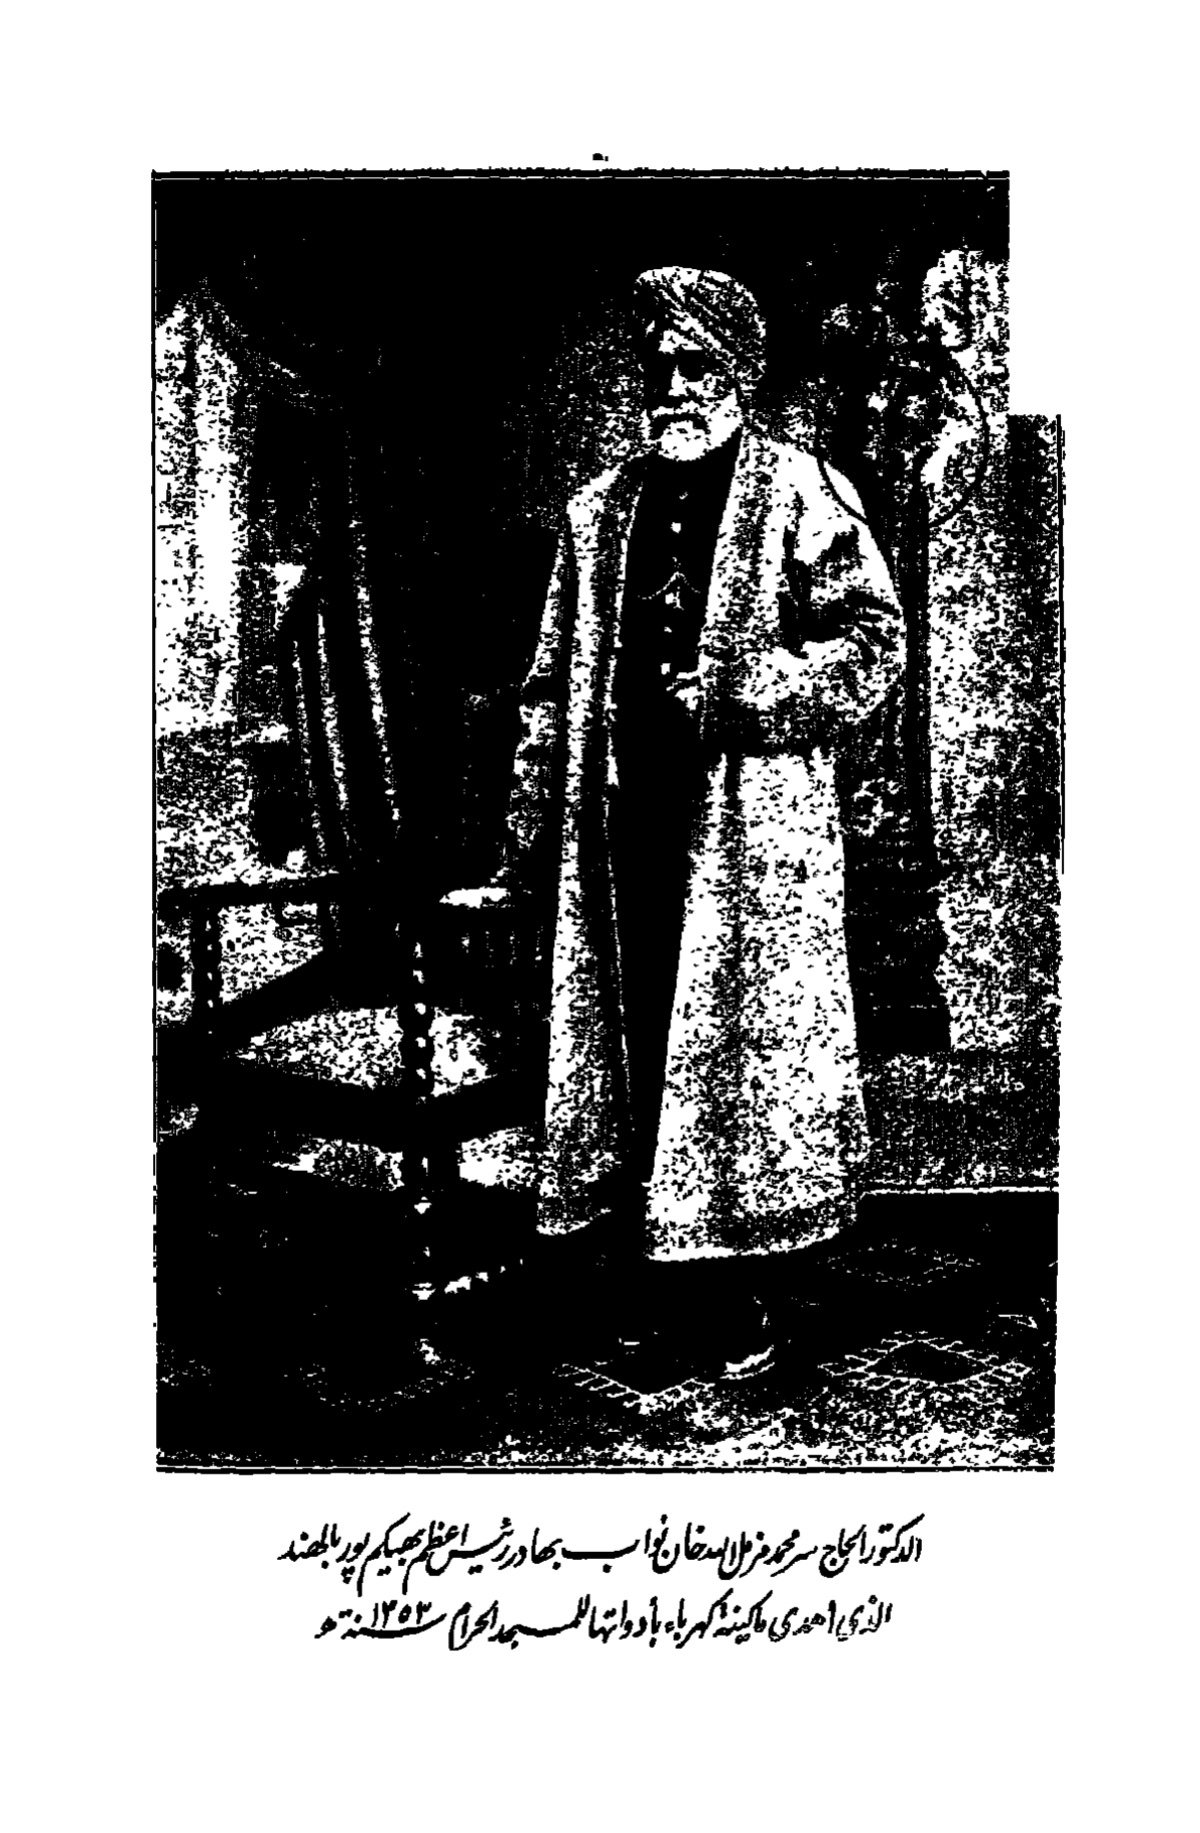 الدكتور الحاج سر محمد مزمل الله خان نواب بهادر رئيس اعظم بهيكم پور بالهند
الذي أهدى ماكينة كهرباء بأدواتها للمسجد الحرام سنة ١٣٥٣ هـ